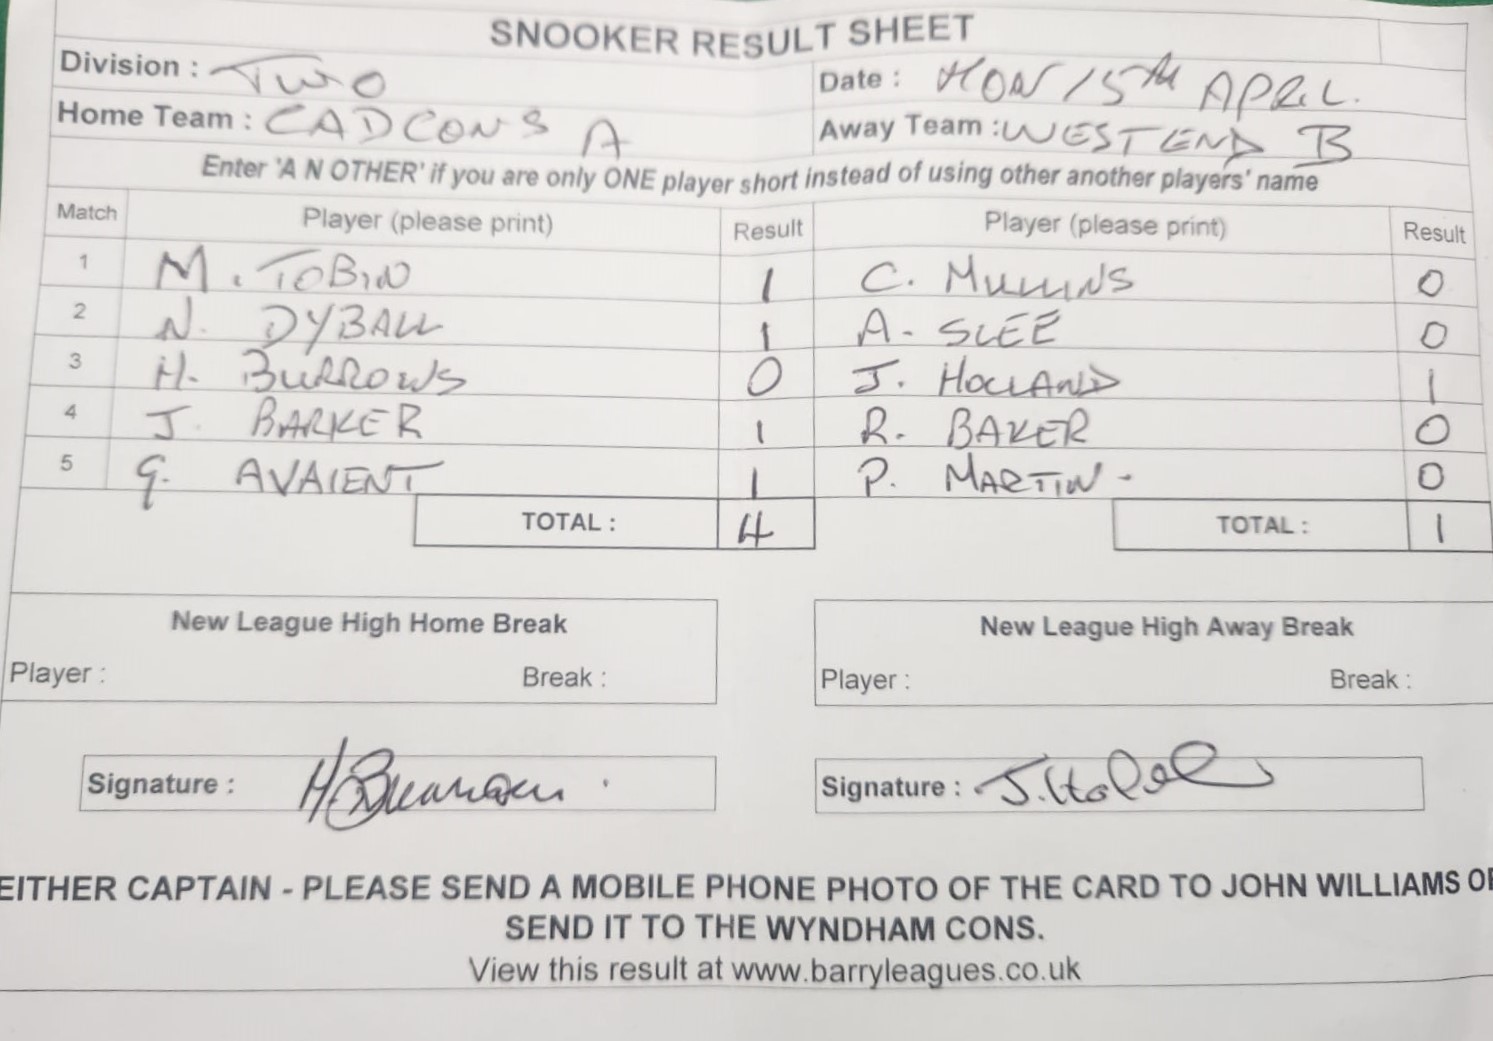 SNOOKER RESULT SHEET
Division : TWO Date : MON 15TH APRIL.
Home Team : CADCONS A Away Team : WESTEND B
Enter 'A N OTHER' if you are only ONE player short instead of using other another players' name
Match Player (please print) Result Player (please print) Result
1 M. TOBIN 1 C. MULLINS 0
2 N. DYBALL 1 A. SLEE 0
3 H. BURROWS 0 J. HOLLAND 1
4 J. BARKER 1 R. BAKER 0
5 G. AVAIENT 1 P. MARTIN - 0
TOTAL : 4 TOTAL : 1
New League High Home Break New League High Away Break
Player : Break : Player : Break :
Signature : Signature :
EITHER CAPTAIN - PLEASE SEND A MOBILE PHONE PHOTO OF THE CARD TO JOHN WILLIAMS OR
SEND IT TO THE WYNDHAM CONS.
View this result at www.barryleagues.co.uk